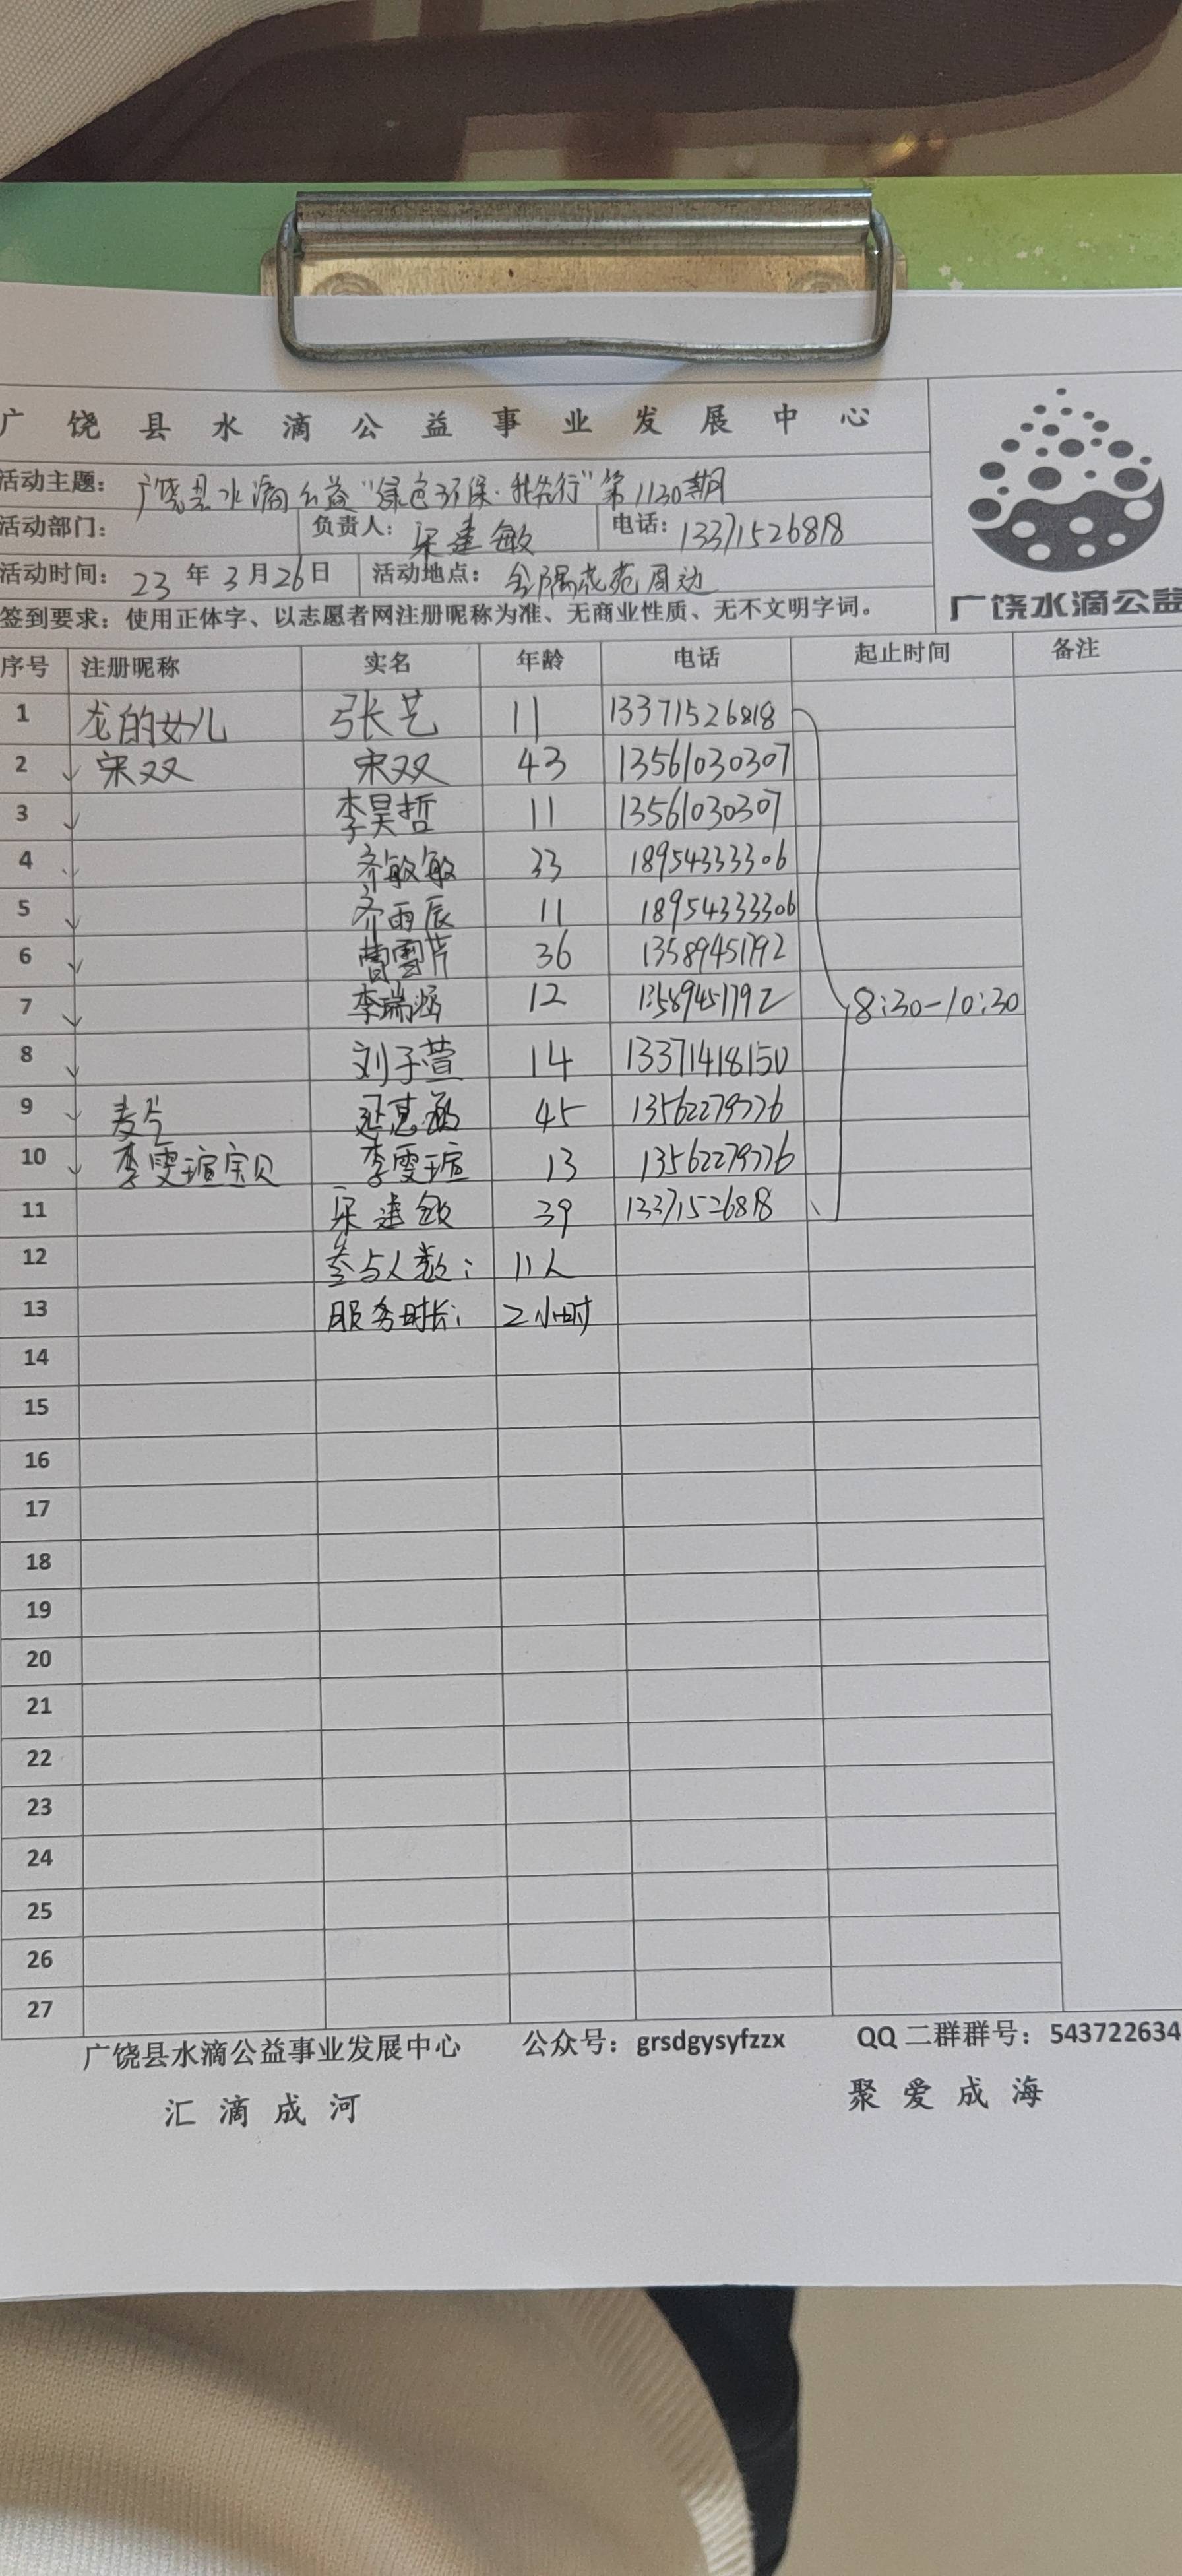 广饶县水滴公益事业发展中心
活动主题：广饶县水滴公益“绿色环保·我先行”第1130期
活动部门： 负责人：宋建敏 电话：13371526818
活动时间：23年3月26日 活动地点：金隅花苑周边
广饶水滴公益
签到要求：使用正体字、以志愿者网注册昵称为准、无商业性质、无不文明字词。
序号 注册昵称 实名 年龄 电话 起止时间 备注
1 龙的女儿 张艺 11 13371526818
2 宋双 宋双 43 13561030307
3 李昊哲 11 13561030307
4 齐敏敏 33 18954333306
5 齐雨辰 11 18954333306
6 曹雪芹 36 13589451792
7 李瑞涵 12 13589451792 8:30-10:30
8 刘子萱 14 13371418150
9 麦片 45 13562279776
10 李雯瑄宝贝 李雯瑄 13 13562279776
11 宋建敏 39 13371526818
12 参与人数： 11人
13 服务时长： 2小时
14
15
16
17
18
19
20
21
22
23
24
25
26
27
广饶县水滴公益事业发展中心 公众号：grsdgysyfzzx QQ二群群号：543722634
汇滴成河 聚爱成海